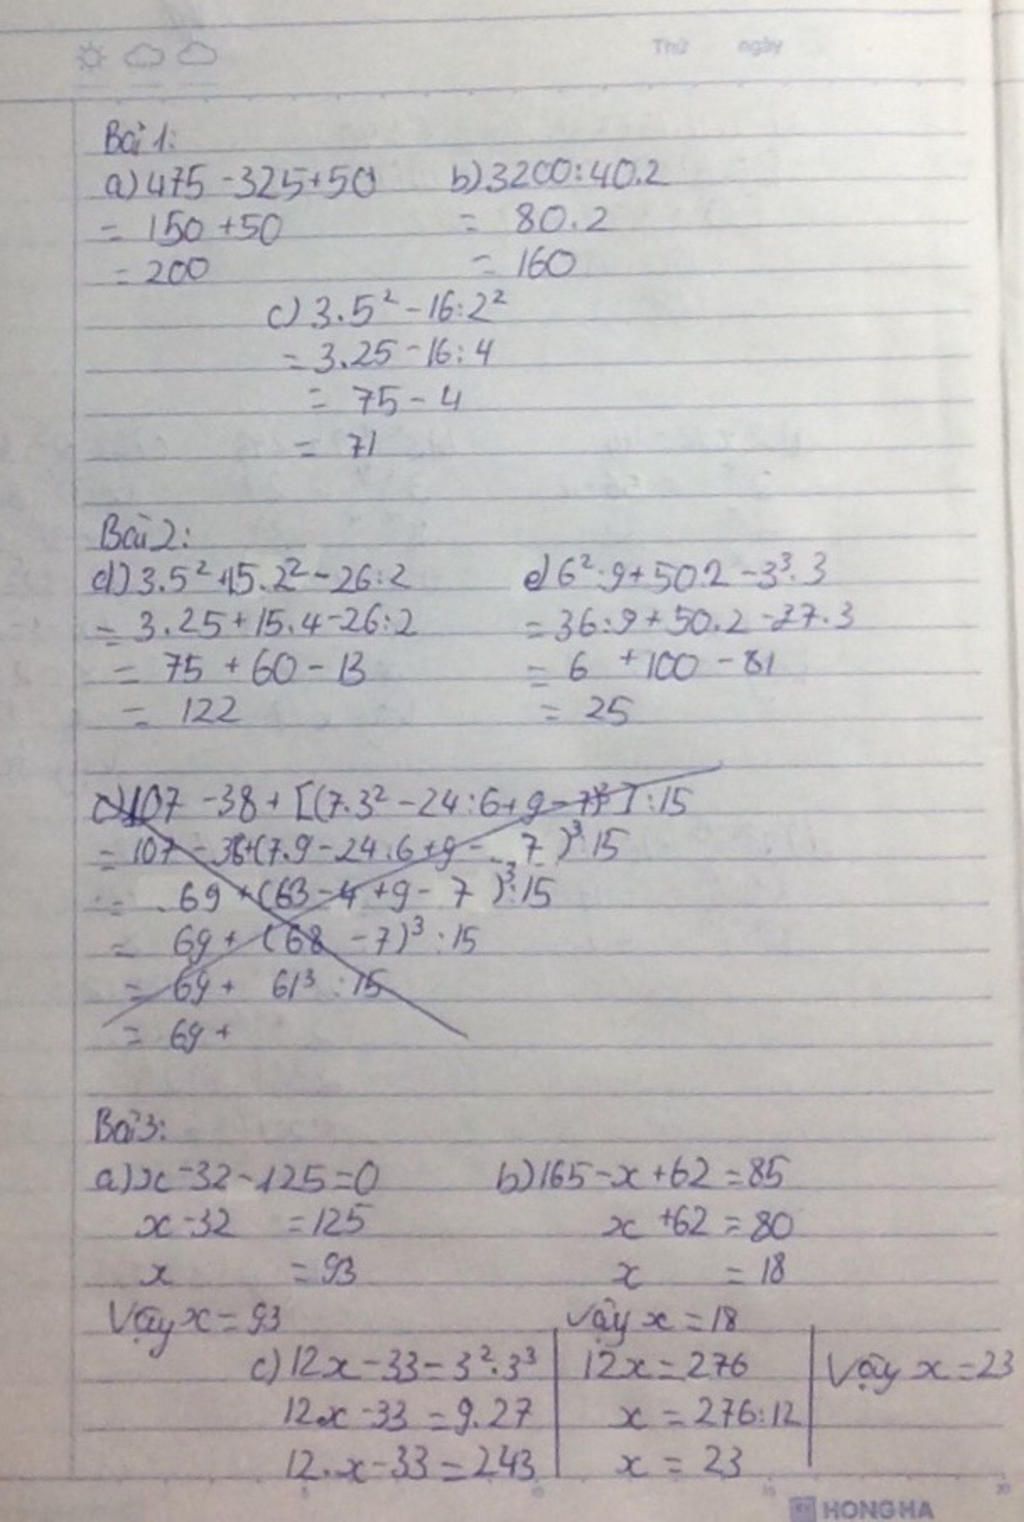 Thứ ngày
Bài 1:
a) 475 - 325 + 50 b) 3200 : 40 . 2
= 150 + 50 = 80 . 2
= 200 = 160
c) 3 . 5² - 16 : 2²
= 3 . 25 - 16 : 4
= 75 - 4
= 71
Bài 2:
d) 3 . 5² + 15 . 2² - 26 : 2 e) 6² : 9 + 50 . 2 - 3³ . 3
= 3 . 25 + 15 . 4 - 26 : 2 = 36 : 9 + 50 . 2 - 27 . 3
= 75 + 60 - 13 = 6 + 100 - 81
= 122 = 25
c) 107 - 38 + [(7 . 3² - 24 : 6 + 9 - 7)³] : 15
= 107 - 38 + (7 . 9 - 24 : 6 + 9 - 7)³ : 15
= 69 + (63 - 4 + 9 - 7)³ : 15
= 69 + (68 - 7)³ : 15
= 69 + 61³ : 15
= 69 +
Bài 3:
a) x - 32 - 125 = 0 b) 165 - x + 62 = 85
x - 32 = 125 x + 62 = 80
x = 93 x = 18
Vậy x = 93 Vậy x = 18
c) 12x - 33 = 3² . 3³ 12x = 276 Vậy x = 23
12x - 33 = 9 . 27 x = 276 : 12
12 . x - 33 = 243 x = 23
HONG HA